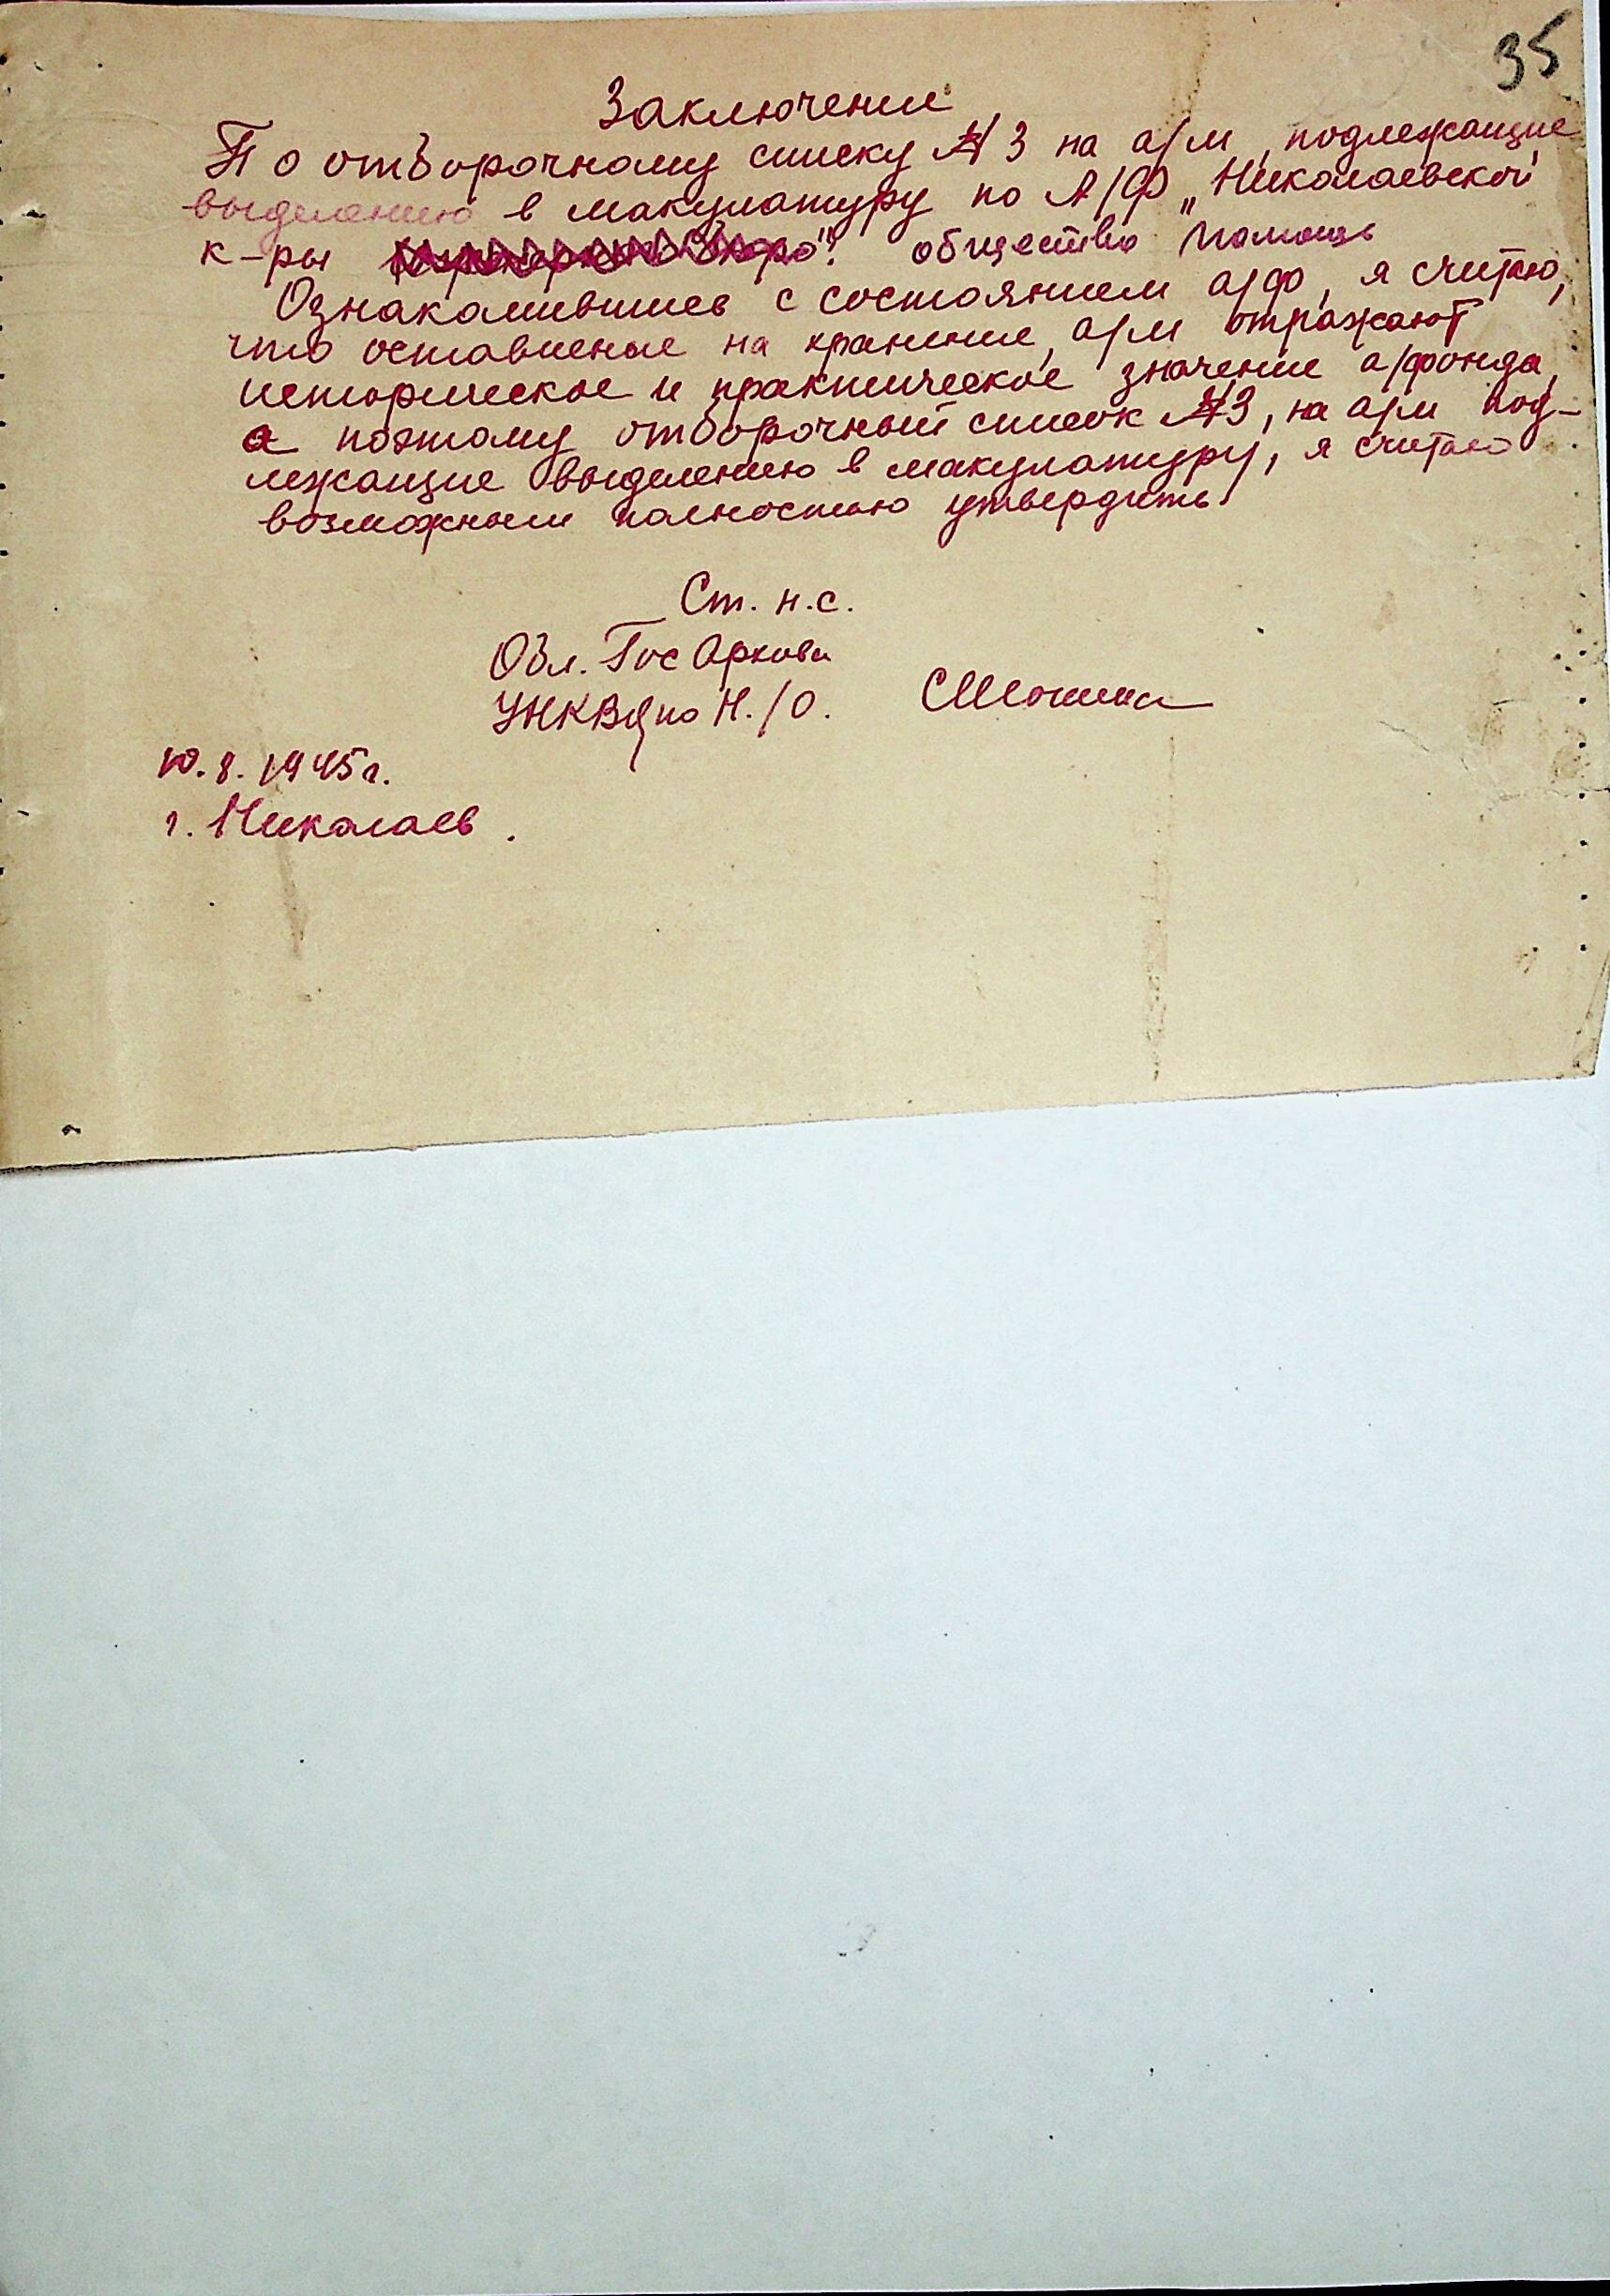 35
Заключение
По отборочному списку № 3 на а/м, подлежащие
выделению в макулатуру по А/Ф „Николаевской
к-ры общество помощь
Ознакомившись с состоянием а/ф, я считаю,
что оставленые на хранение, а/м отражают
историческое и практическое значение а/фонда,
а поэтому отборочный список №3, на а/м под-
лежащие выделению в макулатуру, я считаю
возможным полностью утвердить.
Ст. н.с.
Обл. Гос Архива
УНКВД по Н./О.
10.8.1945г.
г. Николаев.